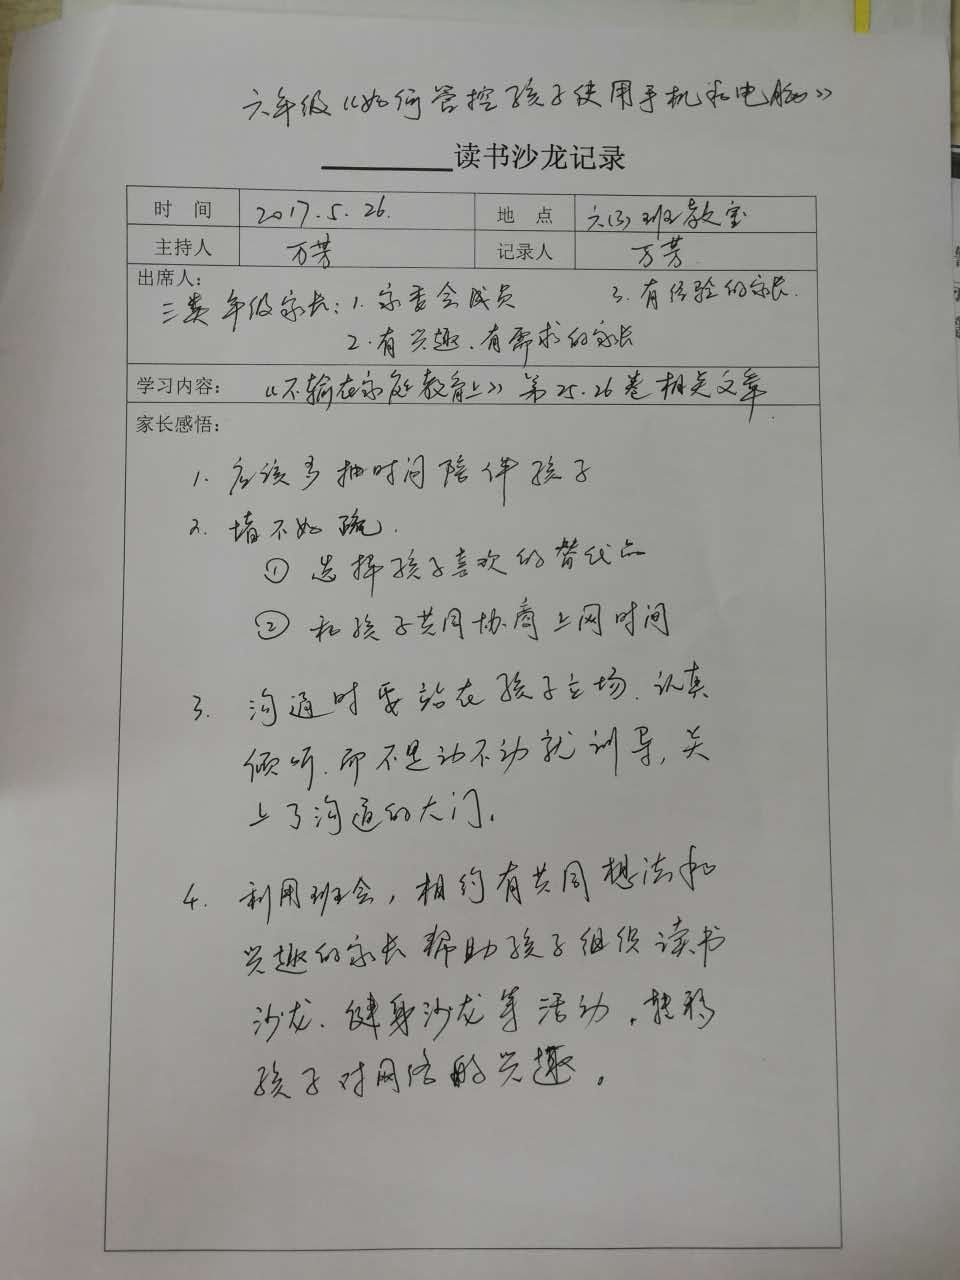 六年级《如何管控孩子使用手机和电脑》
读书沙龙记录
时 间 2017.5.26. 地 点 六(3)班教室
主持人 万芳 记录人 万芳
出席人:
三类年级家长:1.家委会成员 3.有经验的家长.
2.有兴趣、有需求的家长
学习内容: 《不输在家庭教育上》第25.26卷相关文章
家长感悟:
1. 应该多抽时间陪伴孩子
2. 堵不如疏.
① 选择孩子喜欢的替代品
② 和孩子共同协商上网时间
3. 沟通时要站在孩子立场、认真
倾听、而不是动不动就训导,关
上了沟通的大门。
4. 利用班会,相约有共同想法和
兴趣的家长帮助孩子组织读书
沙龙、健身沙龙等活动,转移
孩子对网络的兴趣。